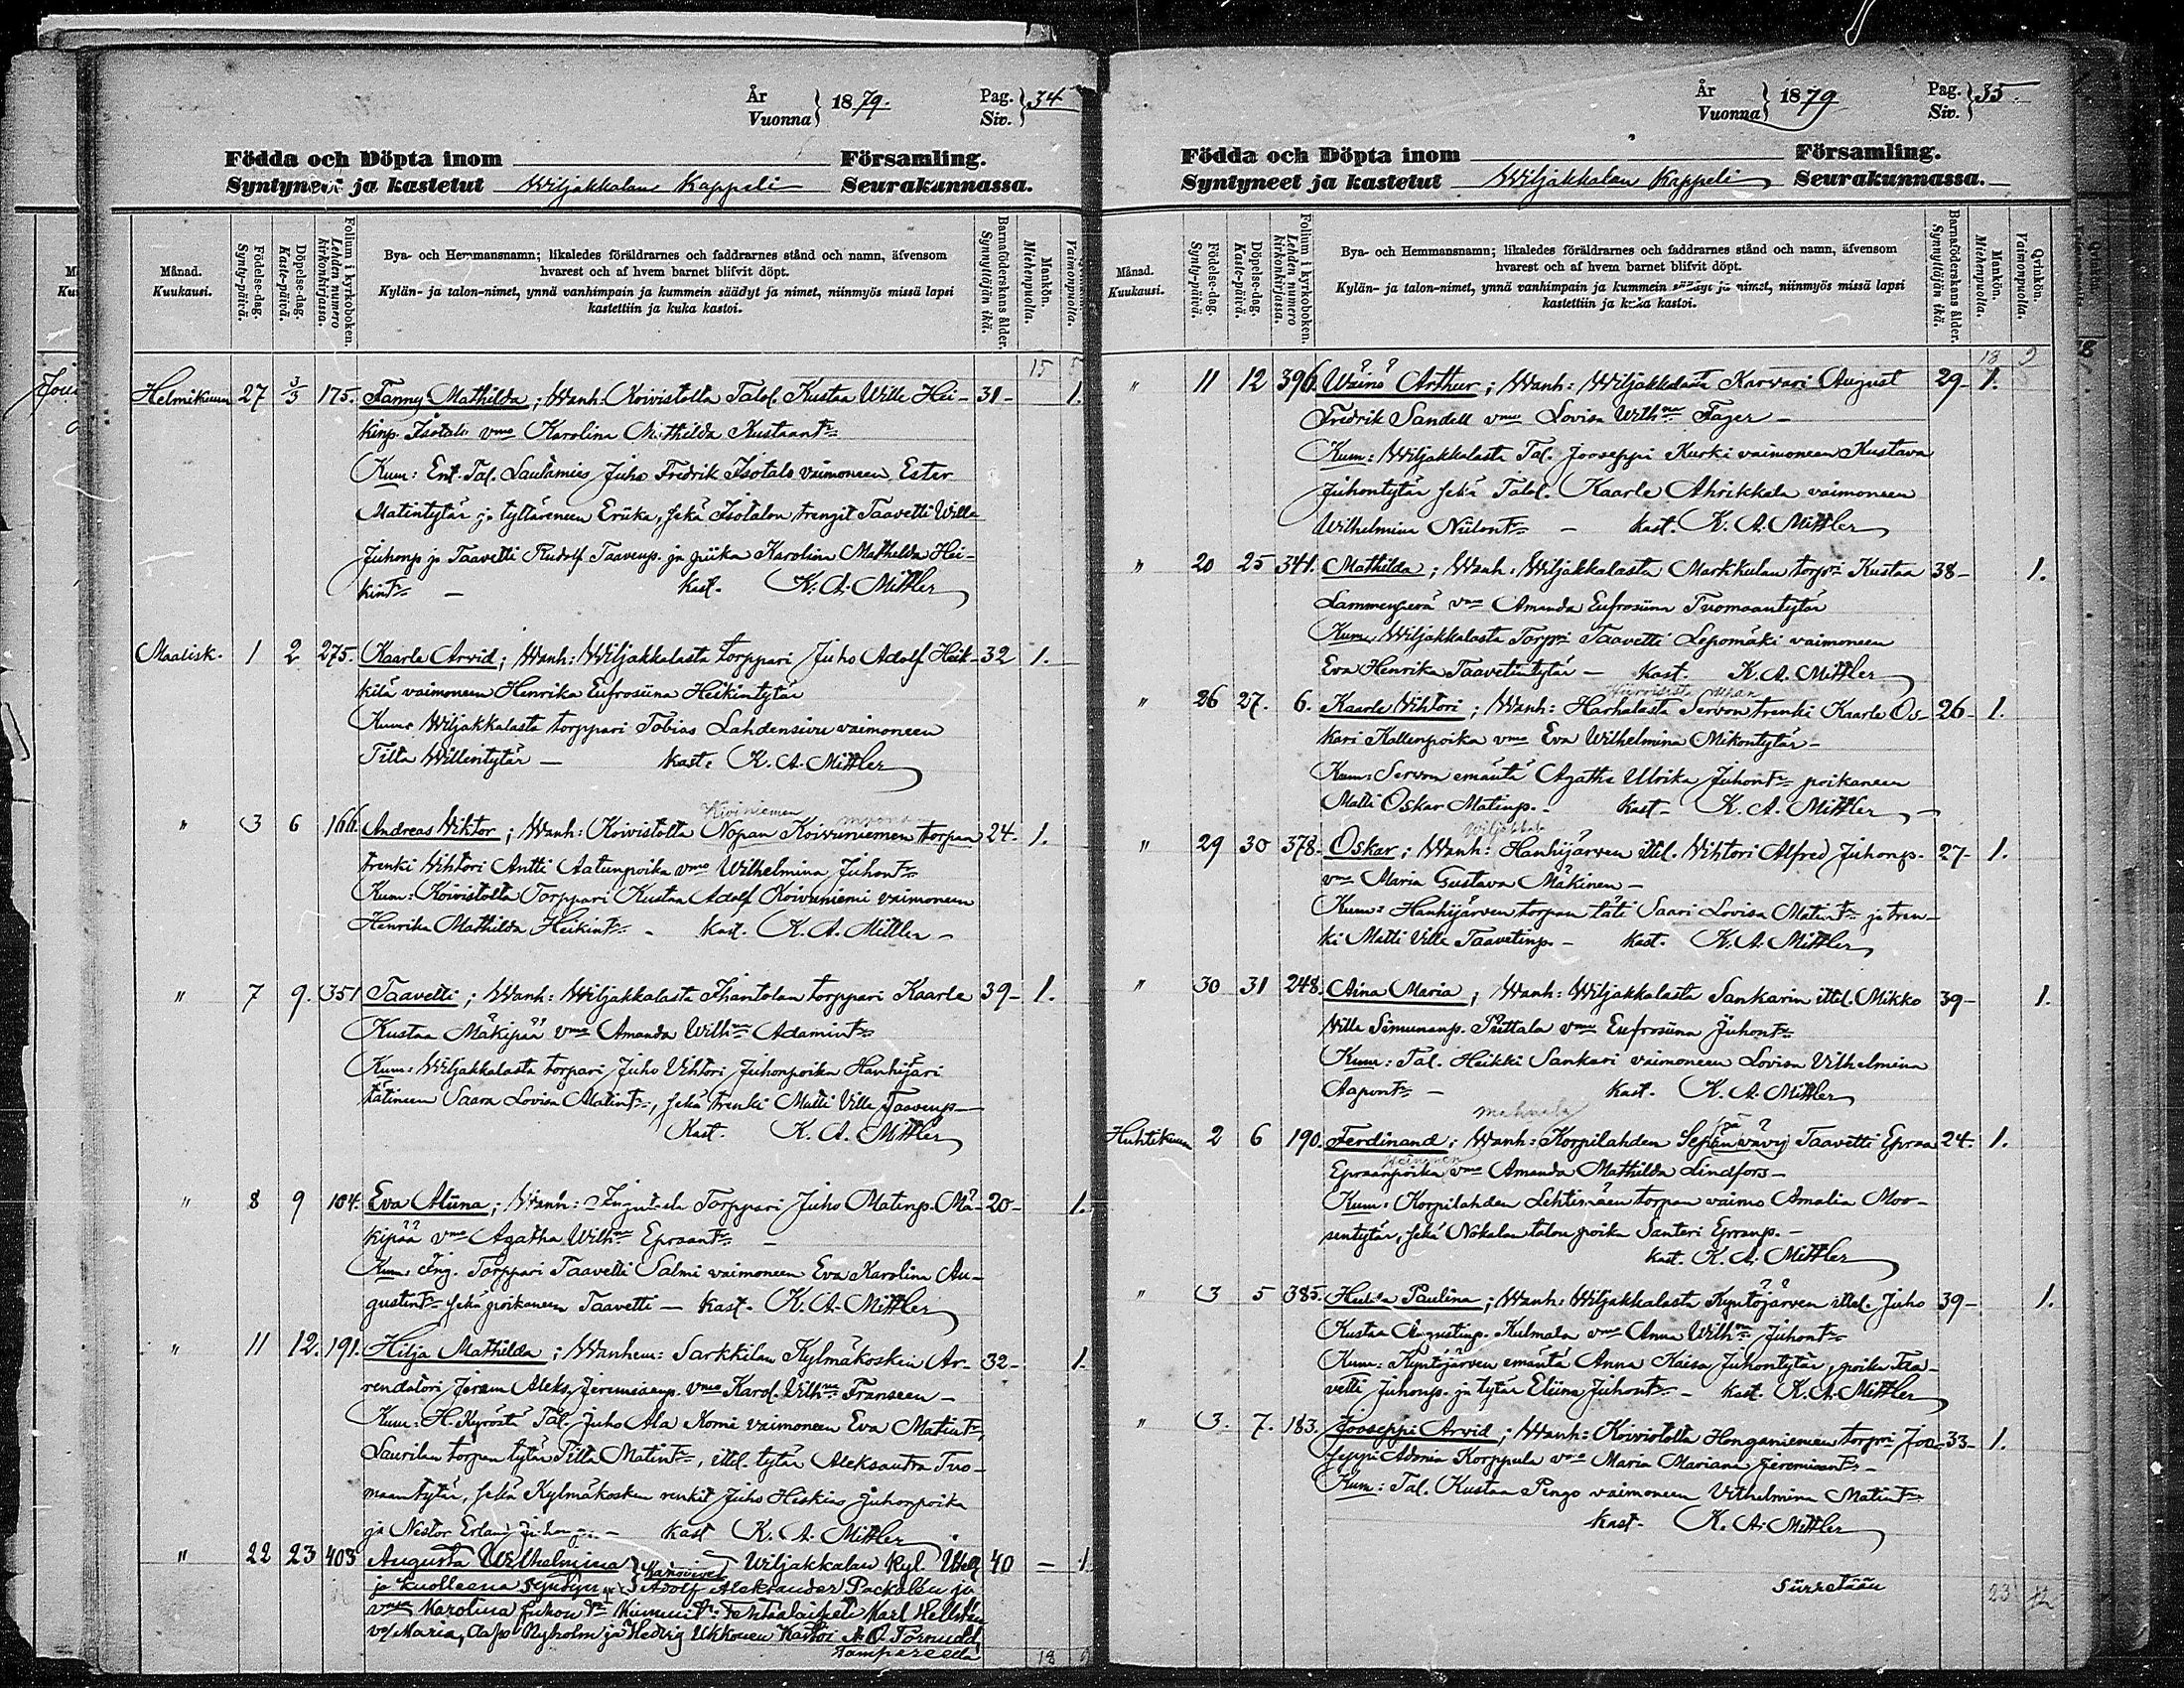 År
Vuonna } 1879.
Pag.
Siv. } 34
Födda och Döpta inom Församling.
Syntyneet ja kastetut Wiljakkalan Kappeli Seurakunnassa.
Månad.
Kuukausi.
Födelse-dag.
Synty-päivä.
Döpelse-dag.
Kaste-päivä.
Folium i kyrkoboken.
Lehden numero
kirkonkirjassa.
Bya- och Hemmansnamn; likaledes föräldrarnes och faddrarnes stånd och namn, äfvensom
hvarest och af hvem barnet blifvit döpt.
Kylän- ja talon-nimet, ynnä vanhimpain ja kummein säädyt ja nimet, niinmyös missä lapsi
kastettiin ja kuka kastoi.
Barnaföderskans ålder.
Synnyttäjän ikä.
Mankön.
Miehenpuolia.
Vaimonpuolia.
15
Helmikuun 27 3/3 175. Fanny Mathilda; Wanh. Koivistolta Talol. Kustaa Wille Hei- 31- 1.
kinp. Isotalo vmo Karolina Mathilda Kustaantr
Kum: Ent. Tal. Juho Fredrik Isotalo vaimoneen Ester
Matintytär ja tyttäreneen Eriika, sekä Isotalon trengit Taavetti Wille
Juhonp ja Taavetti Rudolf Taavenp. ja piika Karolina Mathilda Hei-
kintr — kast. K. A. Mittler
Maalisk. 1 2 275. Kaarle Arvid; Wanh: Wiljakkalasta torppari Juho Adolf Heik- 32 1.
kilä vaimoneen Henrika Eufrosiina Heikintytär
Kum: Wiljakkalasta torppari Tobias Lahdensivu vaimoneen
Tilta Willentytär — kast: K. A. Mittler
Kiviniemen
" 3 6 166. Andreas Viktor; Wanh: Koivistolta Nopan Koivuniemen torpan 24. 1.
trenki Vihtori Antti Aatunpoika vmo Wilhelmina Juhontr
Kum: Koivistolta Torppari Kustaa Adolf Koivuniemi vaimoneen
Henrika Mathilda Heikintr - kast. K. A. Mittler -
" 7 9. 351 Taavetti; Wanh: Wiljakkalasta Ihantolan torppari Kaarle 39- 1.
Kustaa Mäkipää vmo Amanda Wilhna Adamintr
Kum: Wiljakkalasta torpari Juho Vihtori Juhonpoika Hanhijäri
tätineen Saara Lovisa Matintr, sekä trenki Matti Ville Taavenp-
Kast. K. A. Mittler
" 8 9 104. Eva Aliina; Wanh: Torppari Juho Matinp. Mä- 20- 1.
kipää vmo Agatha Wilhna Epraantr —
Kum: Ing. Torppari Taavetti Salmi vaimoneen Eva Karolina Au-
gustintr sekä poikaneen Taavetti — kast. K. A. Mittler
" 11 12. 191. Hilja Mathilda; Wanhem: Sarkkilan Kylmäkosken Ar- 32- 1.
rendatori Jeram Aleks. Jeremiaanp. vmo Karol. Vilhna Franseen -
Kum: H. Kyröstä Tal. Juho Ala Komi vaimoneen Eva Matintr,
Laurilan torpan tytär Tilta Matintr, ittel. tytär Aleksandra Tuo-
maantytär, sekä Kylmäkosken renkit Juho Heskias Juhonpoika
ja Nestor Erland - kast K. A. Mittler
" 22 23 403 Augusta Wilhelmina } Wiljakkalan Kyl. 40 — 1
ja kuolleena syntynyt } Adolf Aleksander Packalén ja
vmo Karolina Juhontr Kummit: Karl
vo/ Maria, Nyholm ja Hedvig Ukkonen Kastoi
Tampereella
18
År
Vuonna } 1879
Pag.
Siv. } 35
Födda och Döpta inom Församling.
Syntyneet ja kastetut Wiljakkalan Kappeli Seurakunnassa.
Månad.
Kuukausi.
Födelse-dag.
Synty-päivä.
Döpelse-dag.
Kaste-päivä.
Folium i kyrkoboken.
Lehden numero
kirkonkirjassa.
Bya- och Hemmansnamn; likaledes föräldrarnes och faddrarnes stånd och namn, äfvensom
hvarest och af hvem barnet blifvit döpt.
Kylän- ja talon-nimet, ynnä vanhimpain ja kummein säädyt ja nimet, niinmyös missä lapsi
kastettiin ja kuka kastoi.
Barnaföderskans ålder.
Synnyttäjän ikä.
Mankön.
Miehenpuolia.
Qvinkön.
Vaimonpuolia.
18 9
" 11 12 396. Wäinö Arthur; Wanh: Wiljakkalasta Karvari August 29- 1.
Fredrik Sandell vmo Lovisa Wilhna Fager -
Kum: Wiljakkalasta Tal. Jooseppi Kurki vaimoneen Kustava
Juhontytär sekä Talol. Kaarle Ahrikkala vaimoneen
Wilhelmina Niilontr - kast. K. A. Mittler
" 20 25 341. Mathilda; Wanh: Wiljakkalasta Markkulan torpri Kustaa 38- 1.
Lammenperä vmo Amanda Eufrosiina Tuomaantytär
Kum: Wiljakkalasta Torpri Taavetti Lepomäki vaimoneen
Eva Henrika Taavetintytär - kast. K. A. Mittler
" 26 27. 6. Kaarle Vihtori; Wanh: Harhalasta Servon trenki Kaarle Os- 26- 1.
kari Kallenpoika vmo Eva Wilhelmina Mikontytär -
Kum: Servon emäntä Agatha Ulrika Juhontr poikaneen
Matti Oskar Matinp. - kast - K. A. Mittler -
Wiljakkala
" 29 30 378. Oskar; Wanh: Hanhijärven ittel. Vihtori Alfred Juhonp. 27- 1.
vmo Maria Gustava Mäkinen -
Kum: Hanhijärven torpan täti Saari Lovisa Matintr ja tren-
ki Matti Ville Taavetinp. - kast. K. A. Mittler
" 30 31 248. Aina Maria; Wanh: Wiljakkalasta Sankarin ittel. Mikko 39- 1.
Ville Simunanp. Piittala vmo Eufrosiina Juhontr
Kum: Tal. Heikki Sankari vaimoneen Lovisa Vilhelmina
Aapontr - kast. K. A. Mittler
Mahnala
Huhtikuun 2 6 190. Ferdinand; Wanh: Korpilahden Sepän vävy Taavetti Epraa 24. 1.
Epraanpoika vmo Amanda Mathilda Lindfors -
Kum: Korpilahden Lehtimäen torpan vaimo Amalia Moo-
sentytär, sekä Nokalan talon poika Santeri Epraanp. -
kast. K. A. Mittler
" 3 5 385. Hulda Paulina; Wanh: Wiljakkalasta Kyntöjärven ittel. Juho 39- 1.
Kustaa Augustinp. Kulmala vmo Anna Wilhna Juhontr
Kum: Kyntöjärven emäntä Anna Kaisa Juhontytär, poika Taa-
vetti Juhonp. ja tytär Eliina Juhontr - kast. K. A. Mittler
" 3. 7. 183. Jooseppi Arvid; Wanh: Koivistolta Honganiemen torpri Joo- 33- 1.
seppi Adonia Korppula vmo Maria Mariana Jeremiaantr -
Kum: Tal. Kustaa Pengo vaimoneen Vilhelmina Matintr
kast. K. A. Mittler
Siirretään 23 12